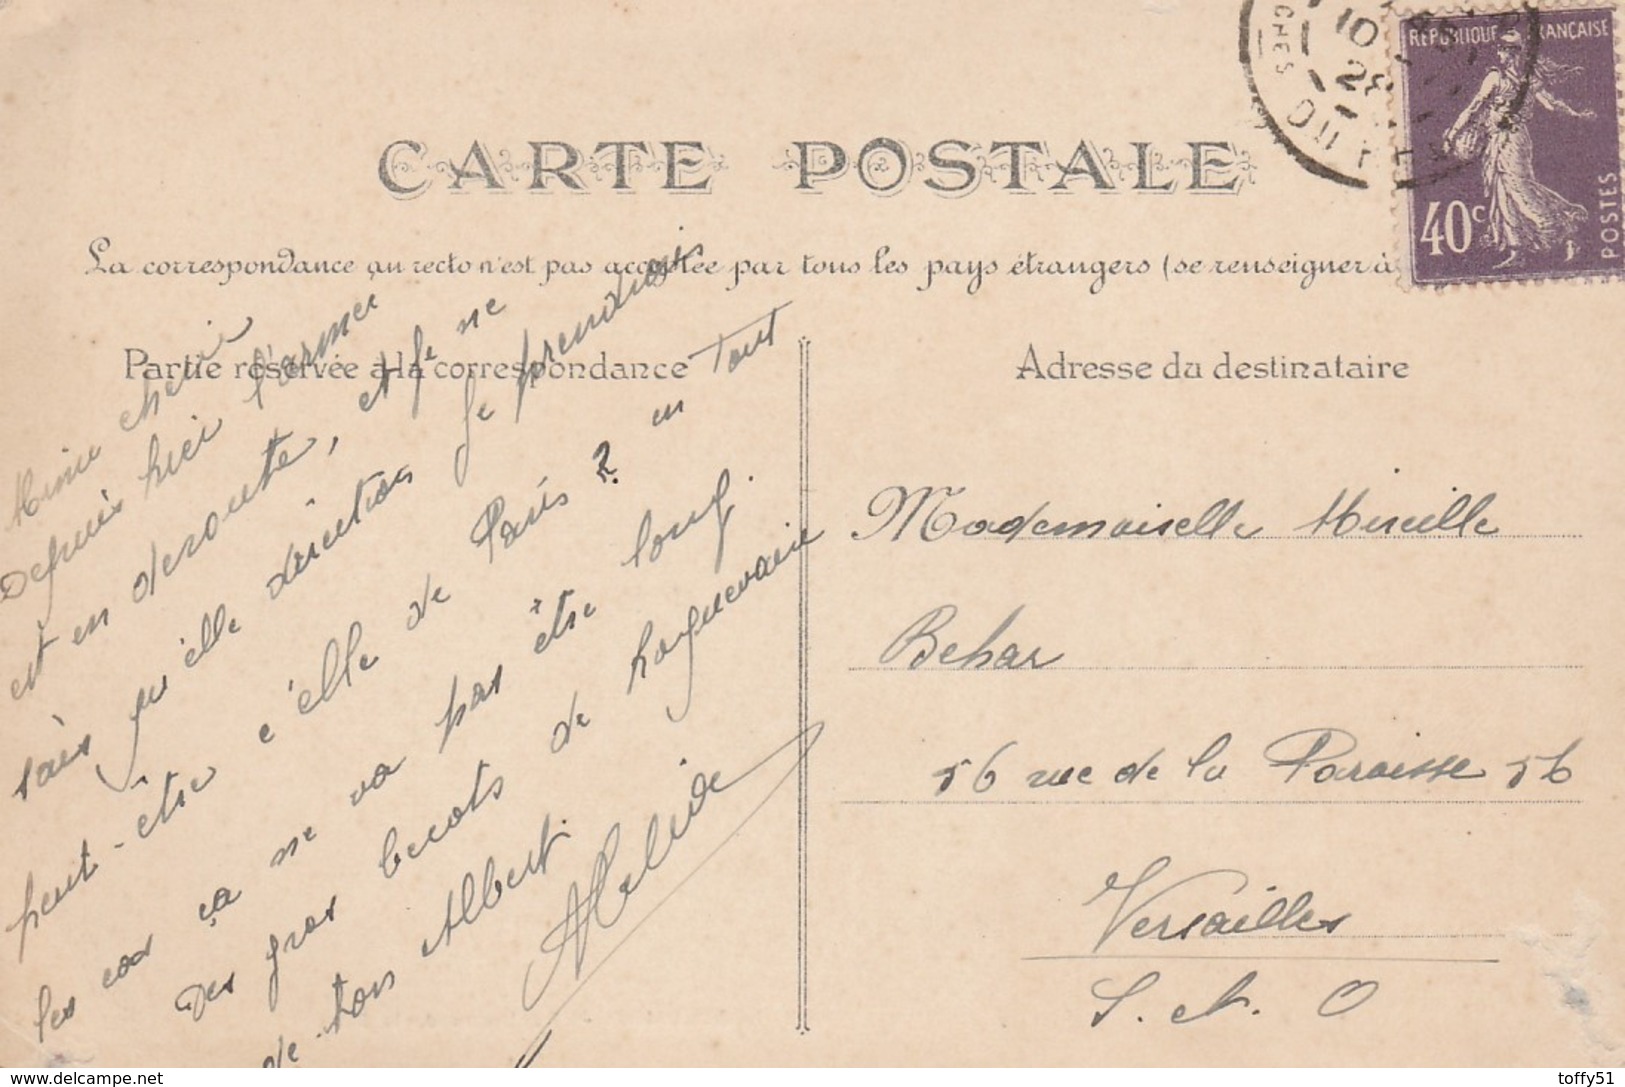 CARTE POSTALE
La correspondance au recto n'est pas acceptée par tous les pays étrangers (se renseigner à
Partie réservée à la correspondance
Mimi cherie
Depuis hier l'armer
est en deroute, et je ne
sais qu'elle direction je prendrais
peut-être c'elle de Paris ? en tout
les cas ça ne va pas être long.
Des gros becots de Roquevaire
de ton Albert.
Adresse du destinataire
Mademoiselle Mireille
Behar
56 rue de la Paroisse 56
Versailles
S. et. O
REPUBLIQUE FRANCAISE
40c
POSTES
CHES DU
10
28
delcampe.net
toffy51